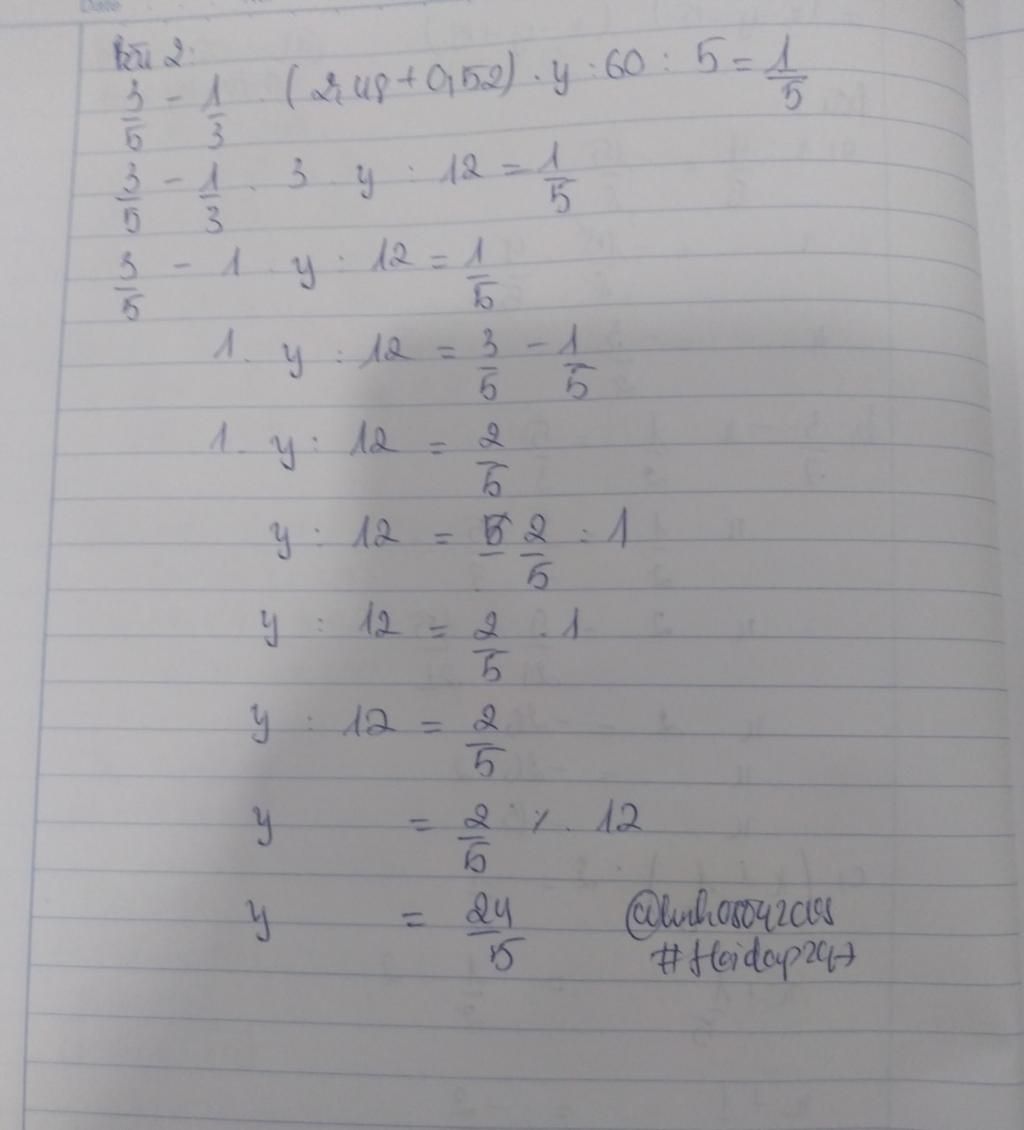 Bài 2:
3/5 - 1/3 . (2,48 + 0,52) . y : 60 : 5 = 1/5
3/5 - 1/3 . 3 y : 12 = 1/5
3/5 - 1 . y : 12 = 1/5
1. y : 12 = 3/5 - 1/5
1. y : 12 = 2/5
y : 12 = 2/5 : 1
y : 12 = 2/5 . 1
y : 12 = 2/5
y = 2/5 . 12
y = 24/5
#Hoidap247